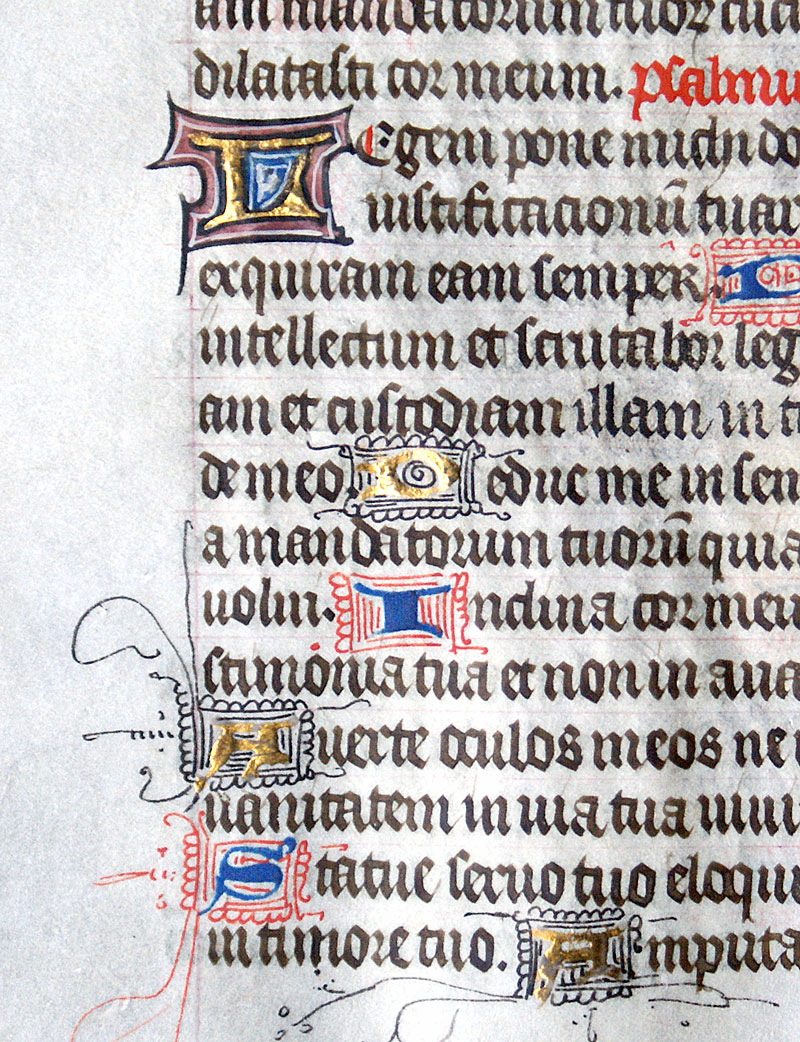 am mandatorum tuor cu
dilatasti cor meum. psalmu
LEgem pone michi do
iustificacionū tuar
exquiram eam semper D
intellectum et scrutabor leg
am et custodiam illam in t
de meo. Deduc me in sem
a mandatorum tuorū quia
uolui. Inclina cor meu
stimonia tua et non in aua
Auerte oculos meos ne u
uanitatem in uia tua uiui
Statue seruo tuo eloqui
in timore tuo. Amputa